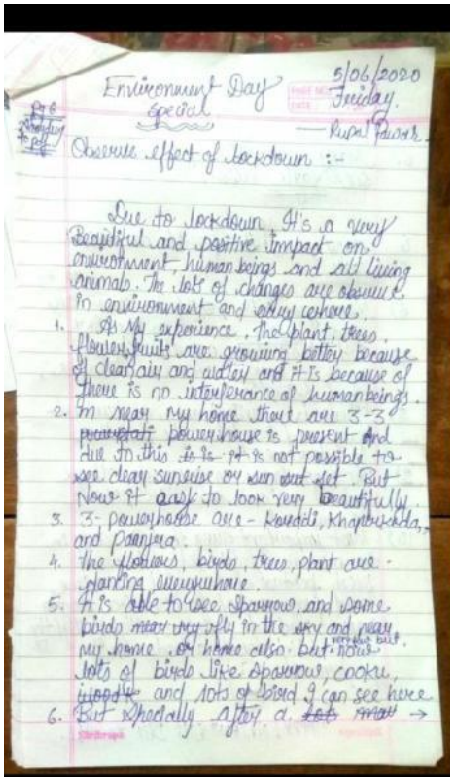 Environment Day
Special
5/06/2020
Friday.
PAGE NO.
DATE
— Rupal Pawar.
Observe effect of lockdown :-
Due to lockdown, It's a very
Beautiful and positive impact on
environment, human beings and all living
animals. The lots of changes are observe
in environment and every where.
1. As My experience, the plant, trees,
flower, fruits are growing better because
of clean air and water and it is because of
there is no interferance of human beings.
2. In near my home there are 3-3
powerhouse is present And
due to this is it is not possible to
see clear sunrise or sun set. But
Now it to look very beautifully
3. 3- powerhouse are - Koradi, Khaperkheda,
and
4. The flowers, birds, trees, plant are -
everywhere.
5. It is able to see sparrow, and some
birds fly in the sky and near
my home or home also. but now
lots of birds like sparrow,
and lots of bird I can see here
6. But Specially after a →